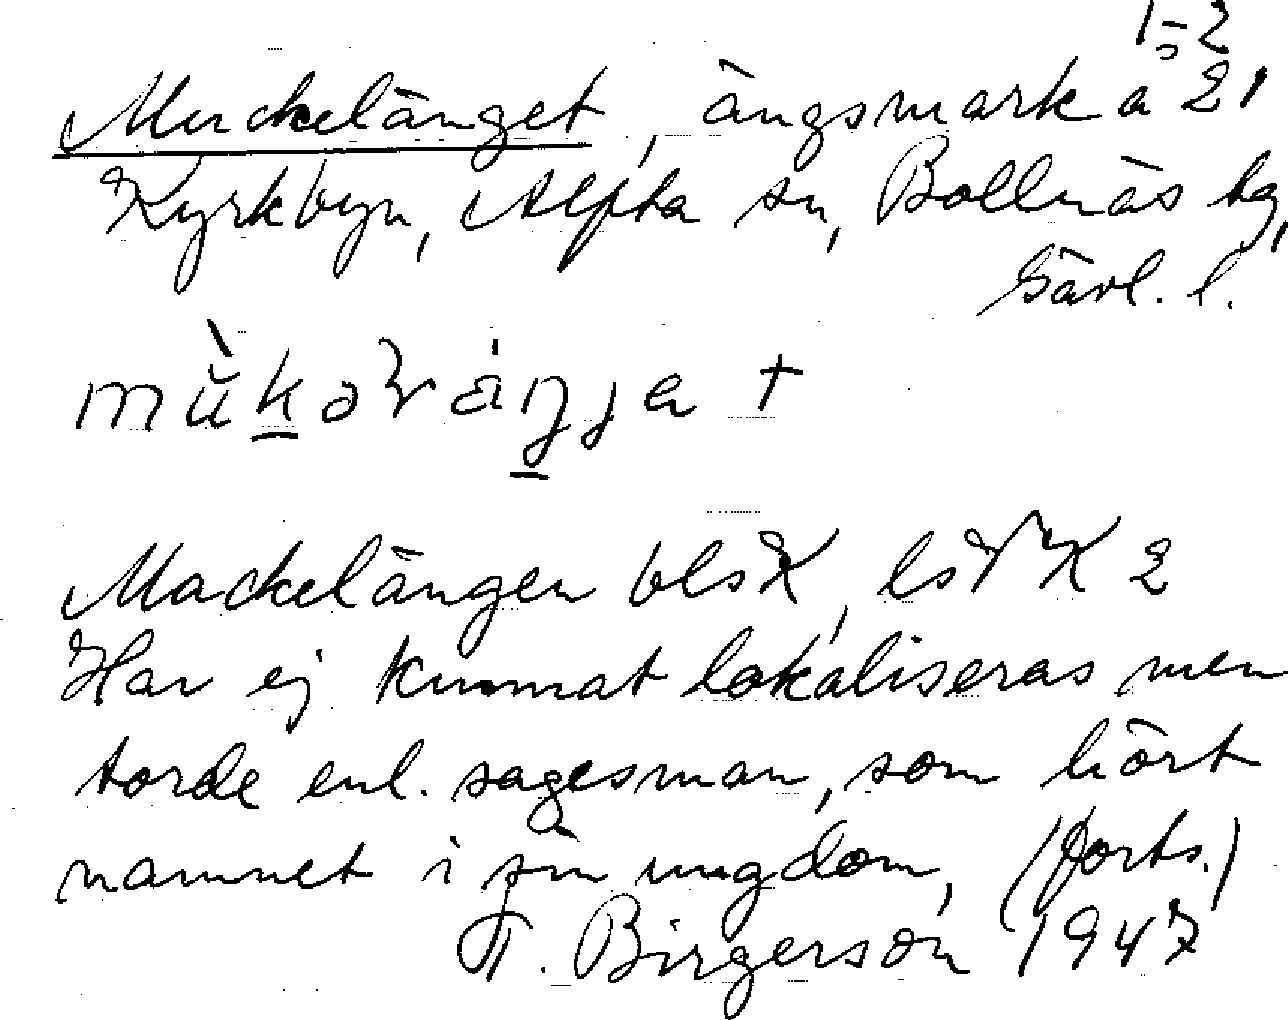 1-2
Muckelänget, ängsmark å 21
Kyrkbyn, Alfta sn, Bollnäs hg,
Gävl. l.
Mackelängen blsK, lsVK 2
Har ej kunnat lokaliseras men
torde enl. sagesman, som hört
namnet i sin ungdom, (forts.)
T. Birgerson 1947